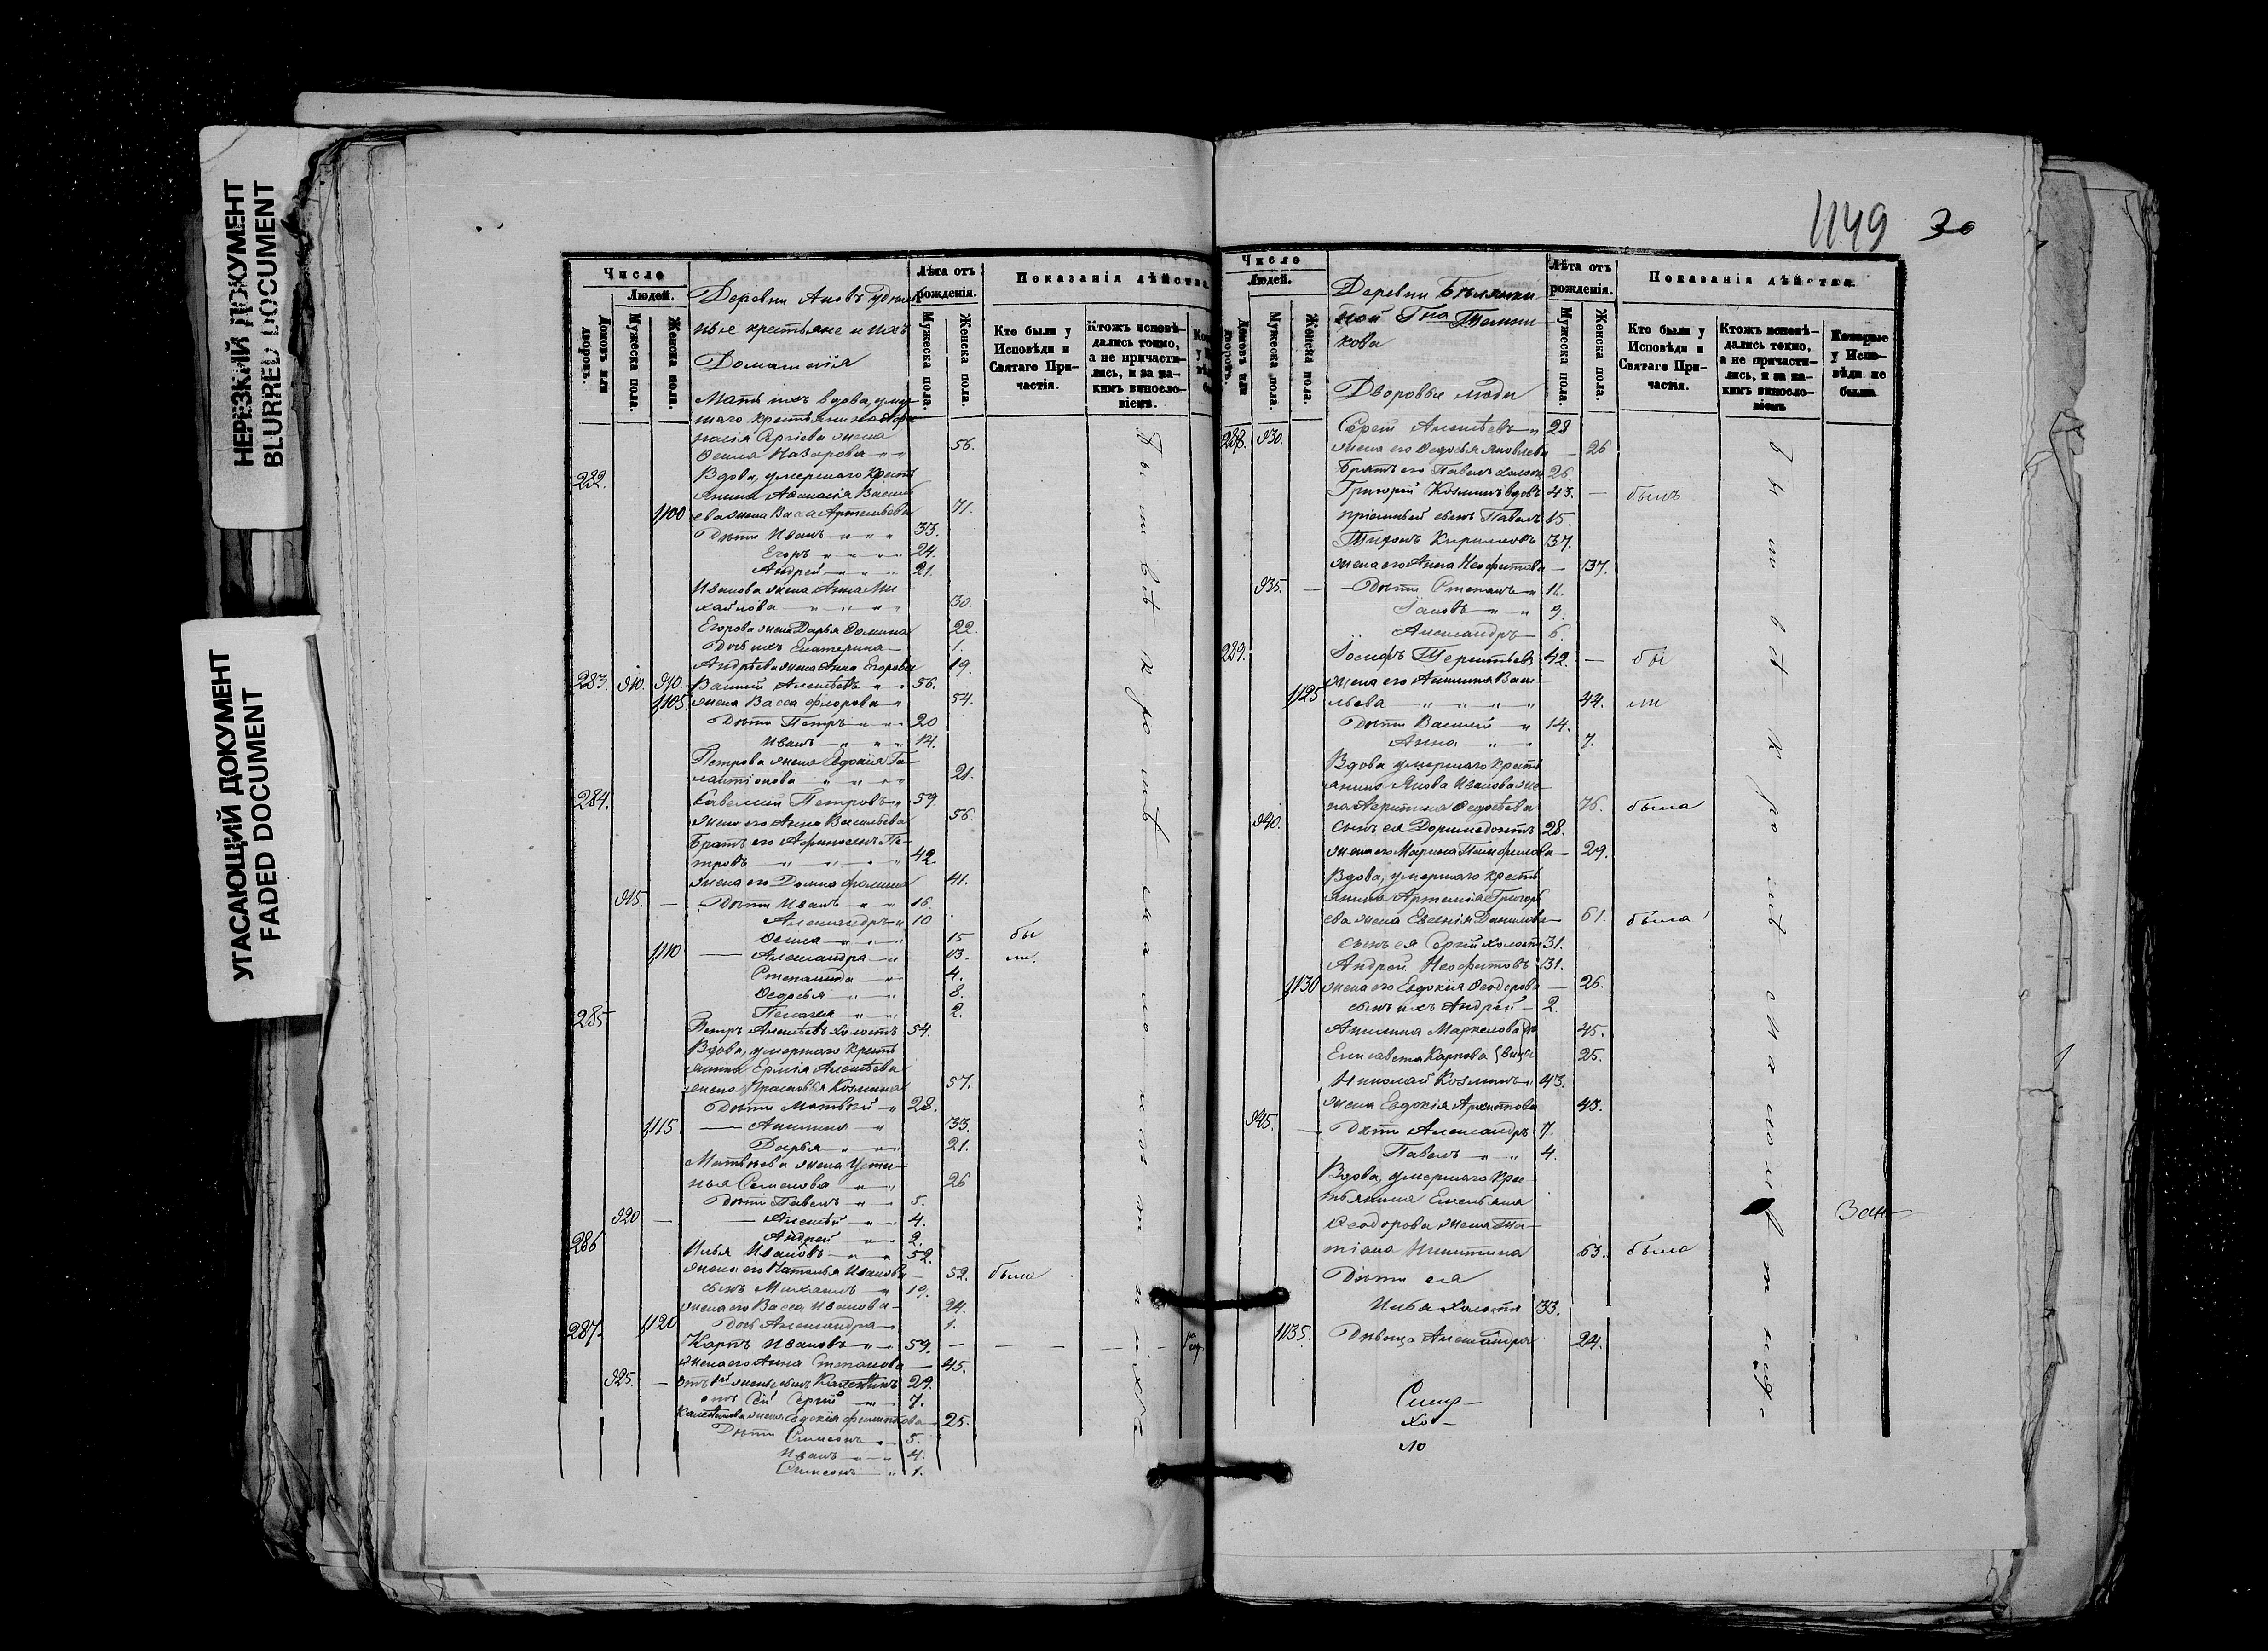 НЕРЕЗКИЙ ДОКУМЕНТ
BLURRED DOCUMENT
УГАСАЮЩИЙ ДОКУМЕНТ
FADED DOCUMENT
Число
Людей.
Домовъ или дворовъ.
Мужеска пола.
Женска пола.
Лѣта отъ рожденія.
Мужеска пола.
Женска пола.
Показанія дѣйства.
Кто были у Исповѣди и Святаго Причастія.
Ктожъ исповѣдались токмо, а не причастились, и за какимъ винословіемъ.
Деревни
крестьяне и ихъ
Домашнія
Мать ихъ вдова, умершаго крестьянина
Сергіева жена
Назарова 56.
282. Вдова, умершаго крестьянина
1100 жена Васса Артемьева 71.
Дѣти Иванъ 33.
Егоръ 24.
Андрей 21.
Иванова жена Анна Михайлова 30.
Егорова жена Дарья Фомина 22.
Дочь ихъ Екатерина 1.
Андреева жена Анна Егорова 19.
283. 910. Василій Алексѣевъ 56.
1105. жена Васса Флорова 54.
Дѣти Петръ 20
Иванъ 14.
Петрова жена Евдокія Галактіонова 21.
284. Савелій Петровъ 59.
жена его Анна Васильева 56.
Братъ его Петровъ 42
жена его Домна Фомина 41.
915. Дѣти Иванъ 16.
Александръ 10
15 бы
1110 Александра 13. ли.
Степанида 4.
Ѳедосья 8.
Пелагея 2.
285 Петръ Алексѣевъ холостъ 54.
Вдова, умершаго крестьянина Ермія Алексѣева
жена Прасковья Козмина 57.
Дѣти Матвѣй 28.
1115 Акилина 33.
Дарья 21.
Матвѣева жена Устинья Семенова 26
Дѣти Павелъ 5.
920 Алексѣй 4.
Андрей 2.
286 Илья Ивановъ 52.
жена его Наталья Иванова 52. была
сынъ Михаилъ 19.
жена его Васса Иванова 24.
1120 Дочь Александра 1.
287. Карпъ Ивановъ 59.
жена его Анна Степанова 45.
925. 29.
Сергій 7.
жена Евдокія Филиппова 25.
Дѣти Симеонъ 5.
Иванъ 4.
Симеонъ 1.
1149 30
Число
Людей.
Домовъ или дворовъ.
Мужеска пола.
Женска пола.
Лѣта отъ рожденія.
Мужеска пола.
Женска пола.
Показанія дѣйства.
Кто были у Исповѣди и Святаго Причастія.
Ктожъ исповѣдались токмо, а не причастились, и за какимъ винословіемъ
Которые у Исповѣди не были.
Деревни
Гна
Дворовые люди
288. 930. Сергій Алексѣевъ 28
жена его Ѳедосья Яковлева 26
Братъ его Павелъ холостъ 26.
Григорій Козминъ вдовъ 43. былъ
пріемный сынъ Павелъ 15.
Тихонъ Кириловъ 37.
жена его Анна Неофитова 37.
935. Дѣти Степанъ 11.
Іаковъ 9.
Александръ 6.
289. Іосифъ Терентьевъ 42. бы
1125 жена его Акилина Васильева 44. ли
Дѣти Василій 14.
Анна 7.
Вдова умершаго крестьянина Якова Иванова жена
76. была
940. сынъ ея Доримедонтъ 28.
жена его Марина Памфилова 29.
Вдова, умершаго крестьянина Артемія Григорьева жена Евгенія Данилова 61. была
сынъ ея Сергій холостъ 31.
Андрей Неофитовъ 31.
1130 жена его Евдокія Ѳеодорова 26.
сынъ ихъ Андрей 2.
Акилина Маркелова 45.
Елисавета Карпова 25.
Николай Козминъ 43.
жена Евдокія Архипова 43.
945. Дѣти Александръ 7.
Павелъ 4.
Вдова, умершаго крестьянина Емельяна
Ѳеодорова жена Татіана Никитина 63. была
Дѣти ея
Илья холостъ 33.
1135. Дѣвица Александра 24.